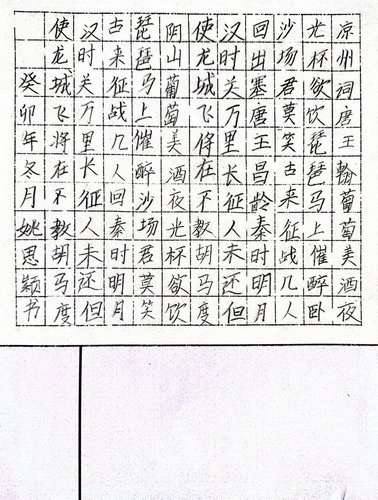 凉州词唐王翰葡萄美酒夜
光杯欲饮琵琶马上催醉卧
沙场君莫笑古来征战几人
回出塞唐王昌龄秦时明月
汉时关万里长征人未还但
使龙城飞将在不教胡马度
阴山葡萄美酒夜光杯欲饮
琵琶马上催醉沙场君莫笑
古来征战几人回秦时明月
汉时关万里长征人未还但
使龙城飞将在不教胡马度
癸卯年冬月姚思颖书